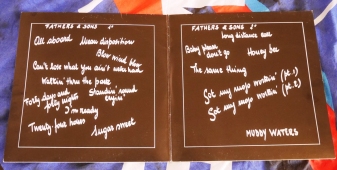 FATHERS & SONS 1°
All aboard Mean disposition
Blow wind blow
Can't lose what you ain't never had
Walkin' thru the park
Forty days and forty nights
Standin' round cryin'
I'm ready
Twenty-four hours
Sugar sweet
FATHERS & SONS 2°
Long distance call
Baby please don't go
Honey bee
The same thing
Got my mojo workin' (pt. 1)
Got my mojo workin' (pt. 2)
MUDDY WATERS